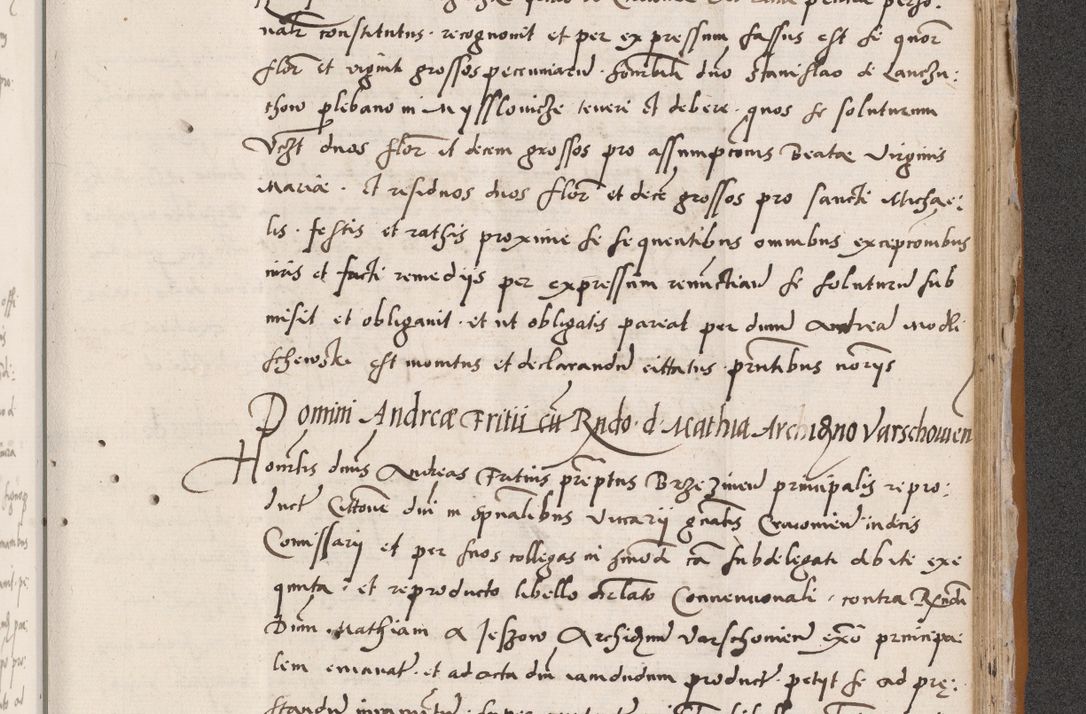 nalr constitutus · recognovit et per expressum fassus est se quor
flor et viginti grossos pecuniarum · honorabili dno Stanislao de Lanczu:
thow plebano in Mysslovicze teneri et debere · quos se soluturum
duos flor et decem grossos pro assumpcionis Beatae Virginis
Mariae · et residuos duos flor et dece grossos pro sancti Michae:
lis · festis et rathis proxime se sequentibus omnibus excepcionibus
iuris et facti remedijs per expressum renunctiand se soluturum sub
misit et obligavit · et ut obligatis pareat per dnum Andrea Modli
schewski est monitus et declarandu cittatus · pntibus noriis
Domini Andreae Fritii cu Rndo · d · Mathia Archidno Varschovien
Honorlis dnus Andreas Fritius preptus Brzezinen principalis repro:
duct Cittone dni in spualibus Vicarij gnalis Cracovien iudicis
Comissarij et per suos collegas in hmod ca subdelegati debite exe
quuta · et reproducto libello oblato Convenuonali · contra Rndu
Dnum Mathiam a Jeszow Archidnum Varschovien exo principa:
lem emanat · et ad acta dm iamdudum product · petijt se ad pre: